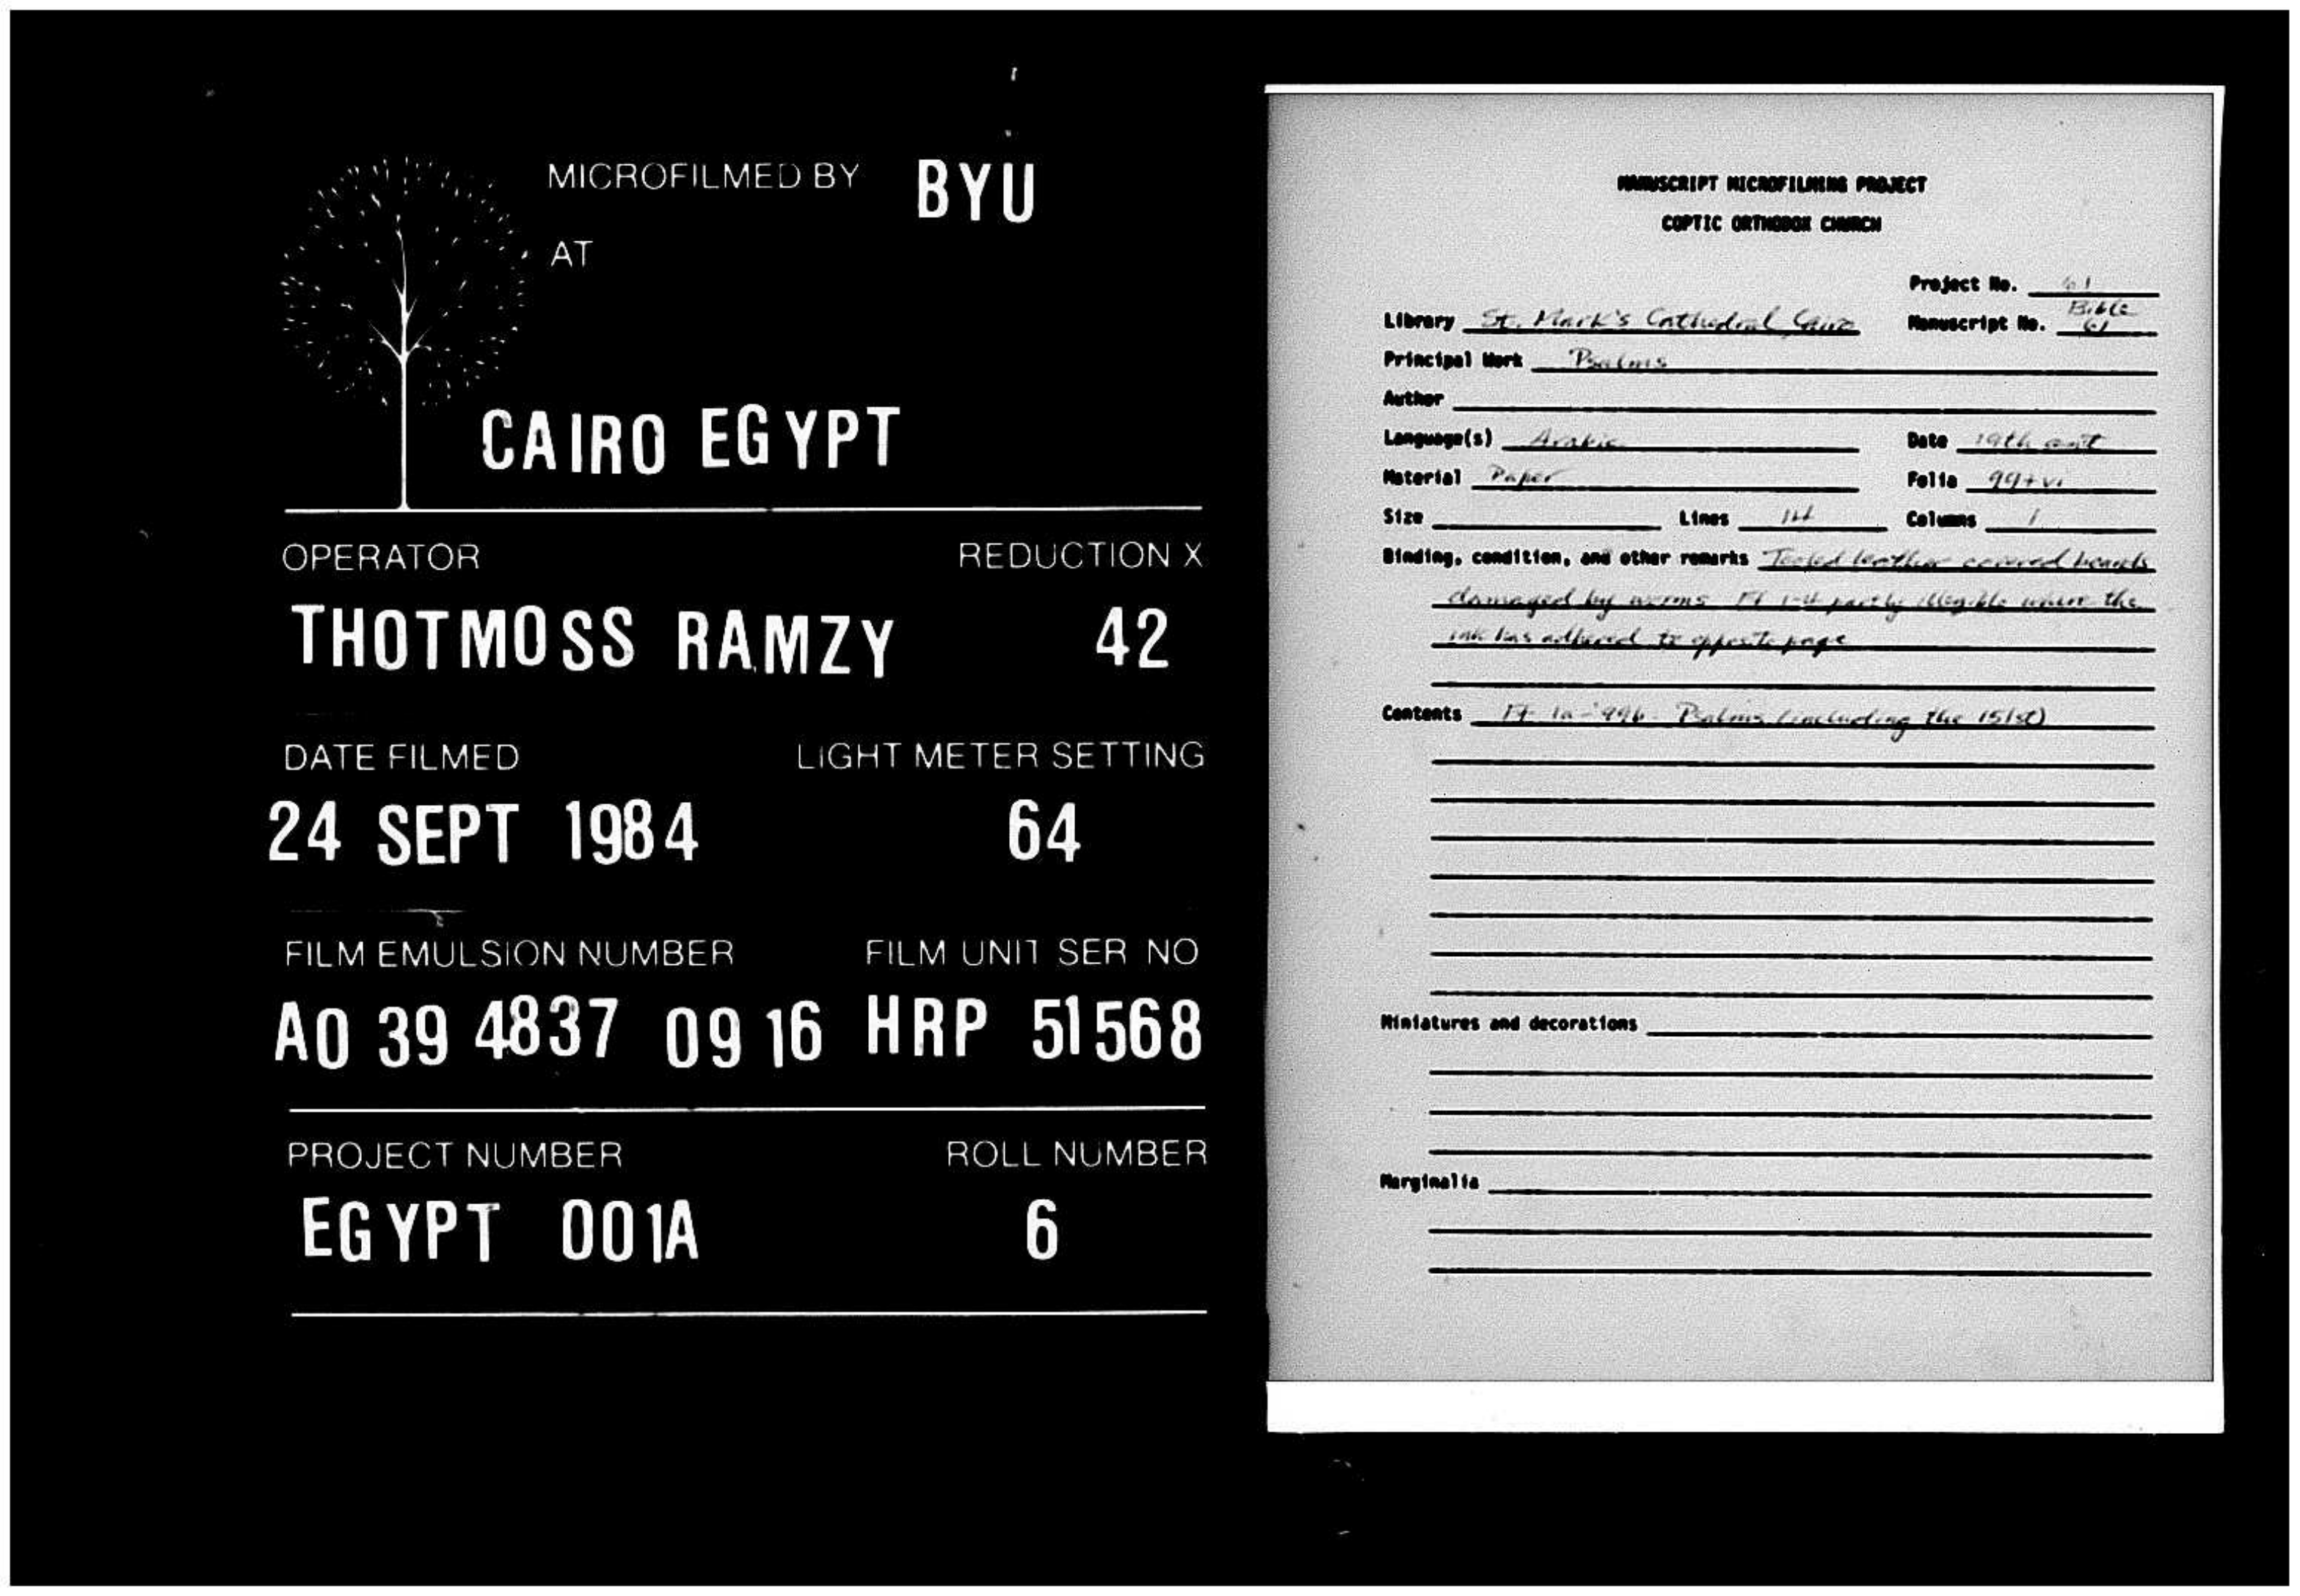 MICROFILMED BY BYU
AT
CAIRO EGYPT
OPERATOR REDUCTION X
THOTMOSS RAMZY 42
DATE FILMED LIGHT METER SETTING
24 SEPT 1984 64
FILM EMULSION NUMBER FILM UNIT SER NO
A0 39 4837 09 16 HRP 51568
PROJECT NUMBER ROLL NUMBER
EGYPT 001A 6
MANUSCRIPT MICROFILMING PROJECT
COPTIC ORTHODOX CHURCH
Project No. 61
Library St. Mark's Cathedral Cairo Manuscript No. Bible 61
Principal Work Psalms
Author
Language(s) Arabic Date 19th cent
Material Paper Folia 99+vi
Size Lines 14 Columns 1
Binding, condition, and other remarks Tooled leather covered boards
damaged by worms Ff 1-4 partly illegible where the
ink has adhered to opposite page
Contents Ff 1a-99b Psalms (including the 151st)
Miniatures and decorations
Marginalia